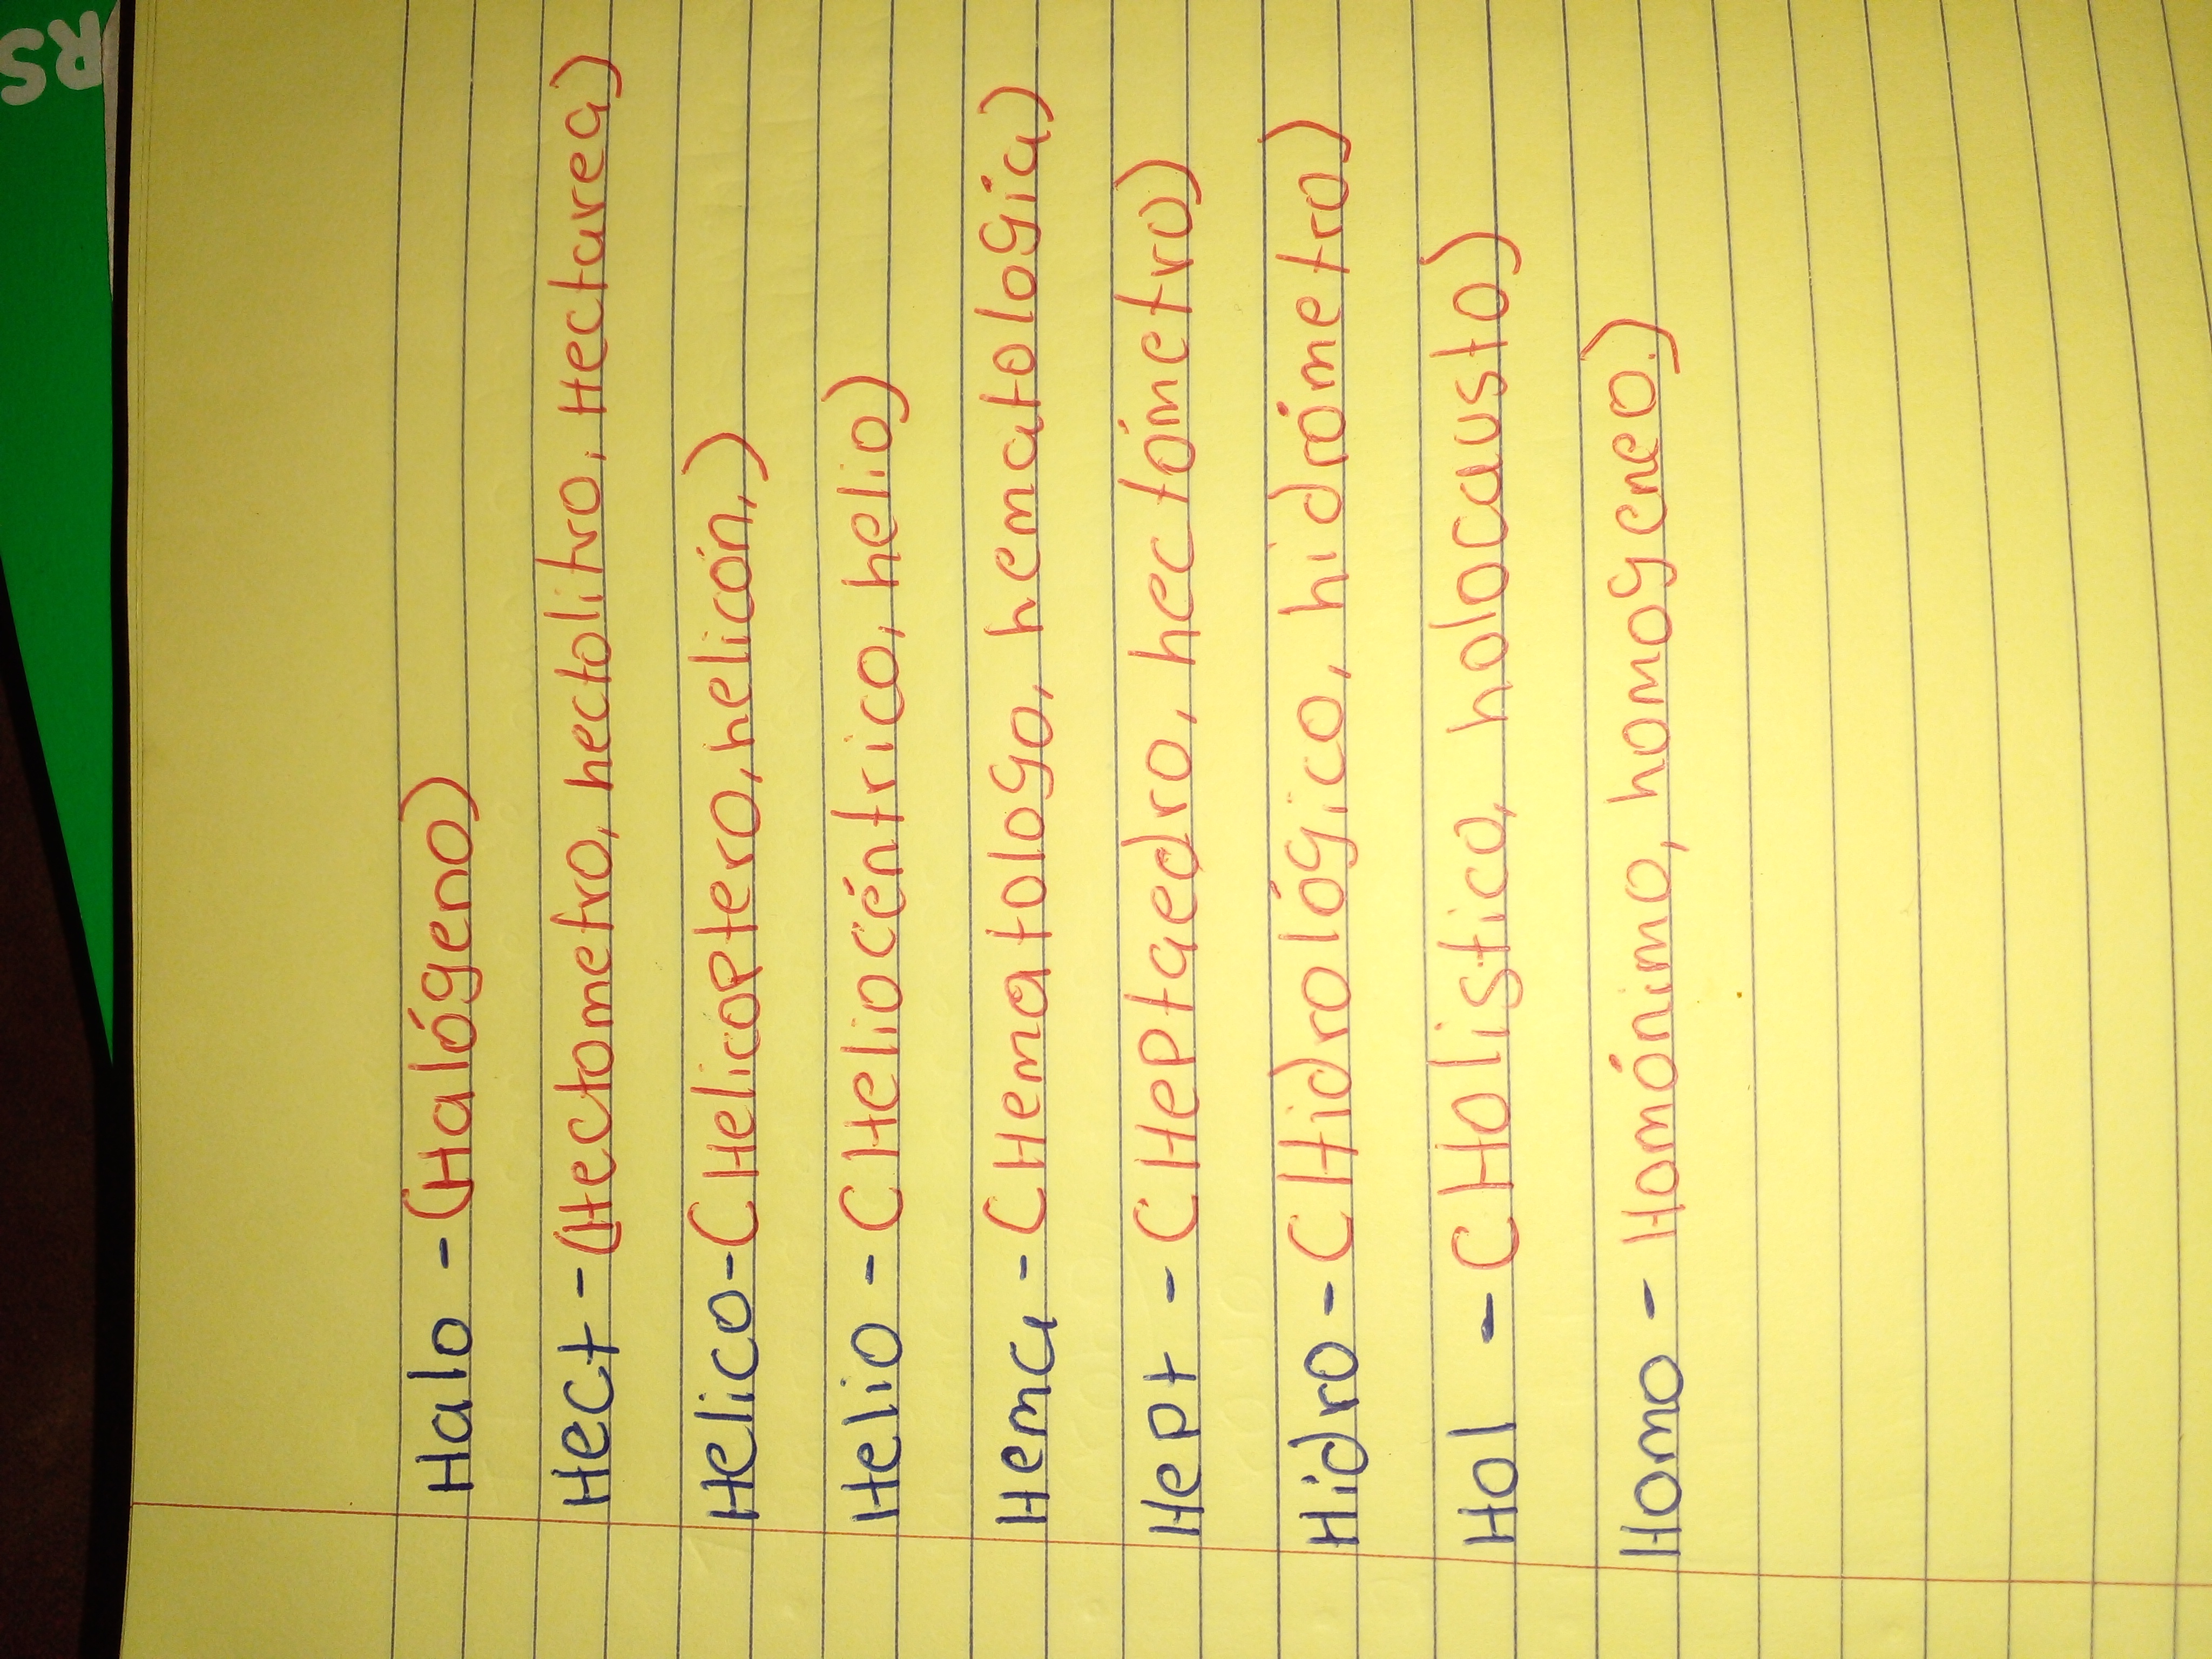 RS
Halo - (Halógeno)
Hect - (Hectometro, hectolitro, Hectarea)
Helico - (Helicoptero, helicón,)
Helio - (Heliocéntrico, helio)
Hema - (Hematologo, hematologia)
Hept - (Heptaedro, hectómetro)
Hidro - (Hidrológico, hidrómetro)
Hol - (Holistica, holocausto)
Homo - Homónimo, homogeneo.)